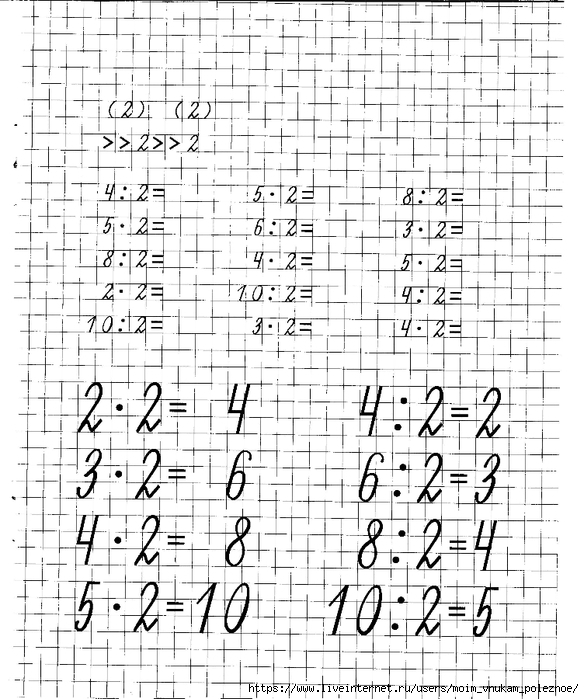 (2) (2)
>>2>>2
4:2= 5·2= 8:2=
5·2= 6:2= 3·2=
8:2= 4·2= 5·2=
2·2= 10:2= 4:2=
10:2= 3·2= 4·2=
2·2= 4 4:2=2
3·2= 6 6:2=3
4·2= 8 8:2=4
5·2=10 10:2=5
https://www.liveinternet.ru/users/moim_vnukam_poleznoe/